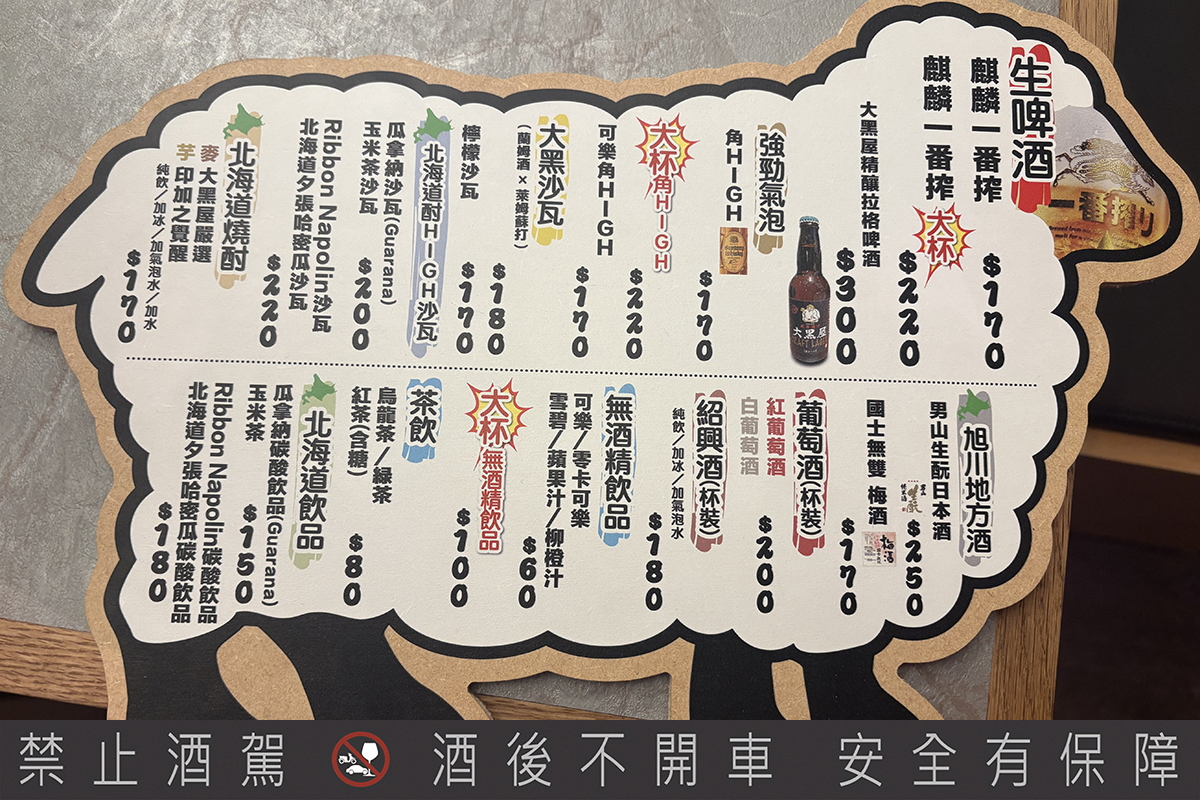 生啤酒
麒麟一番搾 $170
麒麟一番搾 大杯 $220
大黑屋精釀拉格啤酒 $300
強勁氣泡
角HIGH $170
大杯角HIGH $220
可樂角HIGH $170
大黑沙瓦 $180
(蘭姆酒×萊姆蘇打)
檸檬沙瓦 $170
北海道酎HIGH沙瓦
瓜拿納沙瓦(Guarana)
玉米茶沙瓦 $200
Ribbon Napolin沙瓦
北海道夕張哈密瓜沙瓦 $220
北海道燒酎
麥 大黑屋嚴選
芋 印加之覺醒
純飲/加冰/加氣泡水/加水
$170
旭川地方酒
男山生酛日本酒 $250
國士無雙 梅酒 $170
梅酒
葡萄酒(杯裝)
紅葡萄酒
白葡萄酒 $200
紹興酒(杯裝)
純飲/加冰/加氣泡水 $180
無酒精飲品
可樂/零卡可樂
雪碧/蘋果汁/柳橙汁 $60
大杯無酒精飲品 $100
茶飲
烏龍茶/綠茶
紅茶(含糖) $80
北海道飲品
瓜拿納碳酸飲品(Guarana)
玉米茶 $150
Ribbon Napolin碳酸飲品
北海道夕張哈密瓜碳酸飲品 $180
一番搾り
大黒屋
CRAFT LAGER
禁止酒駕 酒後不開車 安全有保障